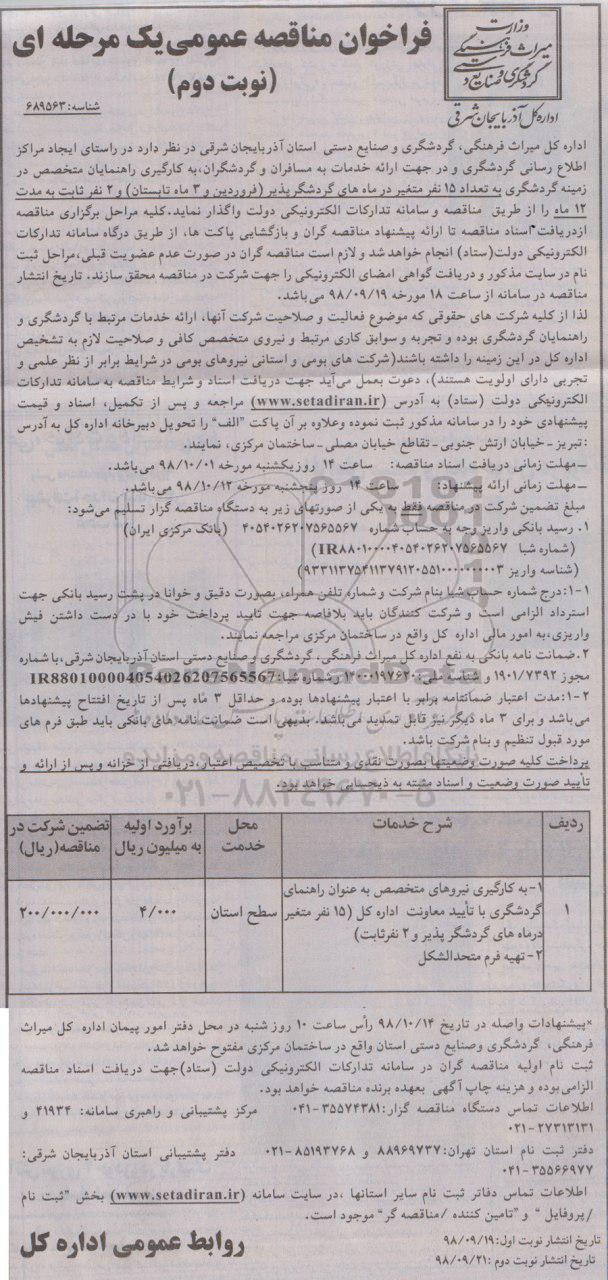 وزارت
میراث فرهنگی
گردشگری و صنایع دستی
اداره کل آذربایجان شرقی
فراخوان مناقصه عمومی یک مرحله ای
(نوبت دوم)
شناسه: ۶۸۹۵۶۳
اداره کل میراث فرهنگی، گردشگری و صنایع دستی استان آذربایجان شرقی در نظر دارد در راستای ایجاد مراکز
اطلاع رسانی گردشگری و در جهت ارائه خدمات به مسافران و گردشگران،به کارگیری راهنمایان متخصص در
زمینه گردشگری به تعداد ۱۵ نفر متغیر در ماه های گردشگر پذیر (فروردین و ۳ ماه تابستان) و ۲ نفر ثابت به مدت
۱۲ ماه را از طریق مناقصه و سامانه تدارکات الکترونیکی دولت واگذار نماید.کلیه مراحل برگزاری مناقصه
ازدریافت اسناد مناقصه تا ارائه پیشنهاد مناقصه گران و بازگشایی پاکت ها، از طریق درگاه سامانه تدارکات
الکترونیکی دولت(ستاد) انجام خواهد شد و لازم است مناقصه گران در صورت عدم عضویت قبلی،مراحل ثبت
نام در سایت مذکور و دریافت گواهی امضای الکترونیکی را جهت شرکت در مناقصه محقق سازند. تاریخ انتشار
مناقصه در سامانه از ساعت ۱۸ مورخه ۹۸/۰۹/۱۹ می‌باشد.
لذا از کلیه شرکت های حقوقی که موضوع فعالیت و صلاحیت شرکت آنها، ارائه خدمات مرتبط با گردشگری و
راهنمایان گردشگری بوده و تجربه و سوابق کاری مرتبط و نیروی متخصص کافی و صلاحیت لازم به تشخیص
اداره کل در این زمینه را داشته باشند(شرکت های بومی و استانی نیروهای بومی در شرایط برابر از نظر علمی و
تجربی دارای اولویت هستند)، دعوت بعمل می‌آید جهت دریافت اسناد و شرایط مناقصه به سامانه تدارکات
الکترونیکی دولت (ستاد) به آدرس (www.setadiran.ir) مراجعه و پس از تکمیل، اسناد و قیمت
پیشنهادی خود را در سامانه مذکور ثبت نموده وعلاوه بر آن پاکت "الف" را تحویل دبیرخانه اداره کل به آدرس
:تبریز - خیابان ارتش جنوبی - تقاطع خیابان مصلی - ساختمان مرکزی، نمایند.
ــ مهلت زمانی دریافت اسناد مناقصه: ساعت ۱۴ روز یکشنبه مورخه ۹۸/۱۰/۰۱ می‌باشد.
ــ مهلت زمانی ارائه پیشنهاد: ساعت ۱۴ روز پنجشنبه مورخه ۹۸/۱۰/۱۲ می‌باشد.
مبلغ تضمین شرکت در مناقصه فقط به یکی از صورتهای زیر به دستگاه مناقصه گزار تسلیم می‌شود:
۱. رسید بانکی واریز وجه به حساب شماره ۴۰۵۴۰۲۶۲۰۷۵۶۵۵۶۷ (بانک مرکزی ایران)
(شماره شبا IR۸۸۰۱۰۰۰۰۴۰۵۴۰۲۶۲۰۷۵۶۵۵۶۷)
(شناسه واریز ۹۳۳۱۱۳۷۵۴۱۱۳۷۹۱۲۰۵۵۱۰۰۰۰۰۰۰۰۰۳)
۱-۱:درج شماره حساب شبا بنام شرکت و شماره تلفن همراه، بصورت دقیق و خوانا در پشت رسید بانکی جهت
استرداد الزامی است و شرکت کنندگان باید بلافاصه جهت تایید پرداخت خود با در دست داشتن فیش
واریزی،به امور مالی اداره کل واقع در ساختمان مرکزی مراجعه نمایند.
۲.ضمانت نامه بانکی به نفع اداره کل میراث فرهنگی، گردشگری و صنایع دستی استان آذربایجان شرقی،با شماره
مجوز ۱۹۰۱/۷۳۹۲ و شناسه ملی: ۱۴۰۰۰۱۹۷۶۲۰ و شماره شبا: IR880100004054026207565567
۲-۱:مدت اعتبار ضمانتنامه برابر با اعتبار پیشنهادها بوده و حداقل ۳ ماه پس از تاریخ افتتاح پیشنهادها
می‌باشد و برای ۳ ماه دیگر نیز قابل تمدید می‌باشد. بدیهی است ضمانت نامه های بانکی باید طبق فرم های
مورد قبول تنظیم و بنام شرکت باشد.
پرداخت کلیه صورت وضعیتها بصورت نقدی و متناسب با تخصیص اعتبار، دریافتی از خزانه و پس از ارائه و
تأیید صورت وضعیت و اسناد مثبته به ذیحسابی خواهد بود.
۰۲۱-۸۸۳۴۹۶۷۰-۵
ردیف شرح خدمات محل خدمت برآورد اولیه به میلیون ریال تضمین شرکت در مناقصه(ریال)
۱ ۱- به کارگیری نیروهای متخصص به عنوان راهنمای
گردشگری با تأیید معاونت اداره کل (۱۵ نفر متغیر سطح استان ۴/۰۰۰ ۲۰۰/۰۰۰/۰۰۰
درماه های گردشگر پذیر و ۲ نفرثابت)
۲- تهیه فرم متحدالشکل
*پیشنهادات واصله در تاریخ ۹۸/۱۰/۱۴ رأس ساعت ۱۰ روز شنبه در محل دفتر امور پیمان اداره کل میراث
فرهنگی، گردشگری وصنایع دستی استان واقع در ساختمان مرکزی مفتوح خواهد شد.
ثبت نام اولیه مناقصه گران در سامانه تدارکات الکترونیکی دولت (ستاد)جهت دریافت اسناد مناقصه
الزامی بوده و هزینه چاپ آگهی بعهده برنده مناقصه خواهد بود.
اطلاعات تماس دستگاه مناقصه گزار: ۳۵۵۷۴۳۸۱-۰۴۱ مرکز پشتیبانی و راهبری سامانه: ۴۱۹۳۴ و
۲۷۳۱۳۱۳۱-۰۲۱
دفتر ثبت نام استان تهران: ۸۸۹۶۹۷۳۷ و ۸۵۱۹۳۷۶۸-۰۲۱ دفتر پشتیبانی استان آذربایجان شرقی:
۳۵۵۶۶۹۷۷-۰۴۱
اطلاعات تماس دفاتر ثبت نام سایر استانها ،در سایت سامانه (www.setadiran.ir) بخش "ثبت نام
/پروفایل" و "تامین کننده /مناقصه گر" موجود است.
تاریخ انتشار نوبت اول: ۹۸/۰۹/۱۹
تاریخ انتشار نوبت دوم : ۹۸/۰۹/۲۱
روابط عمومی اداره کل